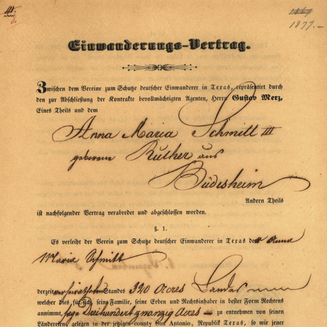 1877.
Einwanderungs-Vertrag.
Zwischen dem Vereine zum Schutze deutscher Einwanderer in Texas, repräsentirt durch
den zur Abschließung der Kontrakte bevollmächtigten Agenten, Herrn Gustav Merz,
Eines Theils und dem
Anna Maria Schmitt III
geborene Ruther aus
Büdesheim
Andern Theils
ist nachfolgender Vertrag verabredet und abgeschlossen worden.
§ 1.
Es verleiht der Verein zum Schutze deutscher Einwanderer in Texas Anna
Maria Schmitt
derzeit Standes 320 Acres Landes
welcher dies für seine Familie, seine Erben und Rechtsinhaber in bester Form Rechtens
annimmt, Dreihundert zwanzig Acres zu entnehmen von seinen
Ländereien, gelegen in der county San Antonio, Republik Texas, so wie jener